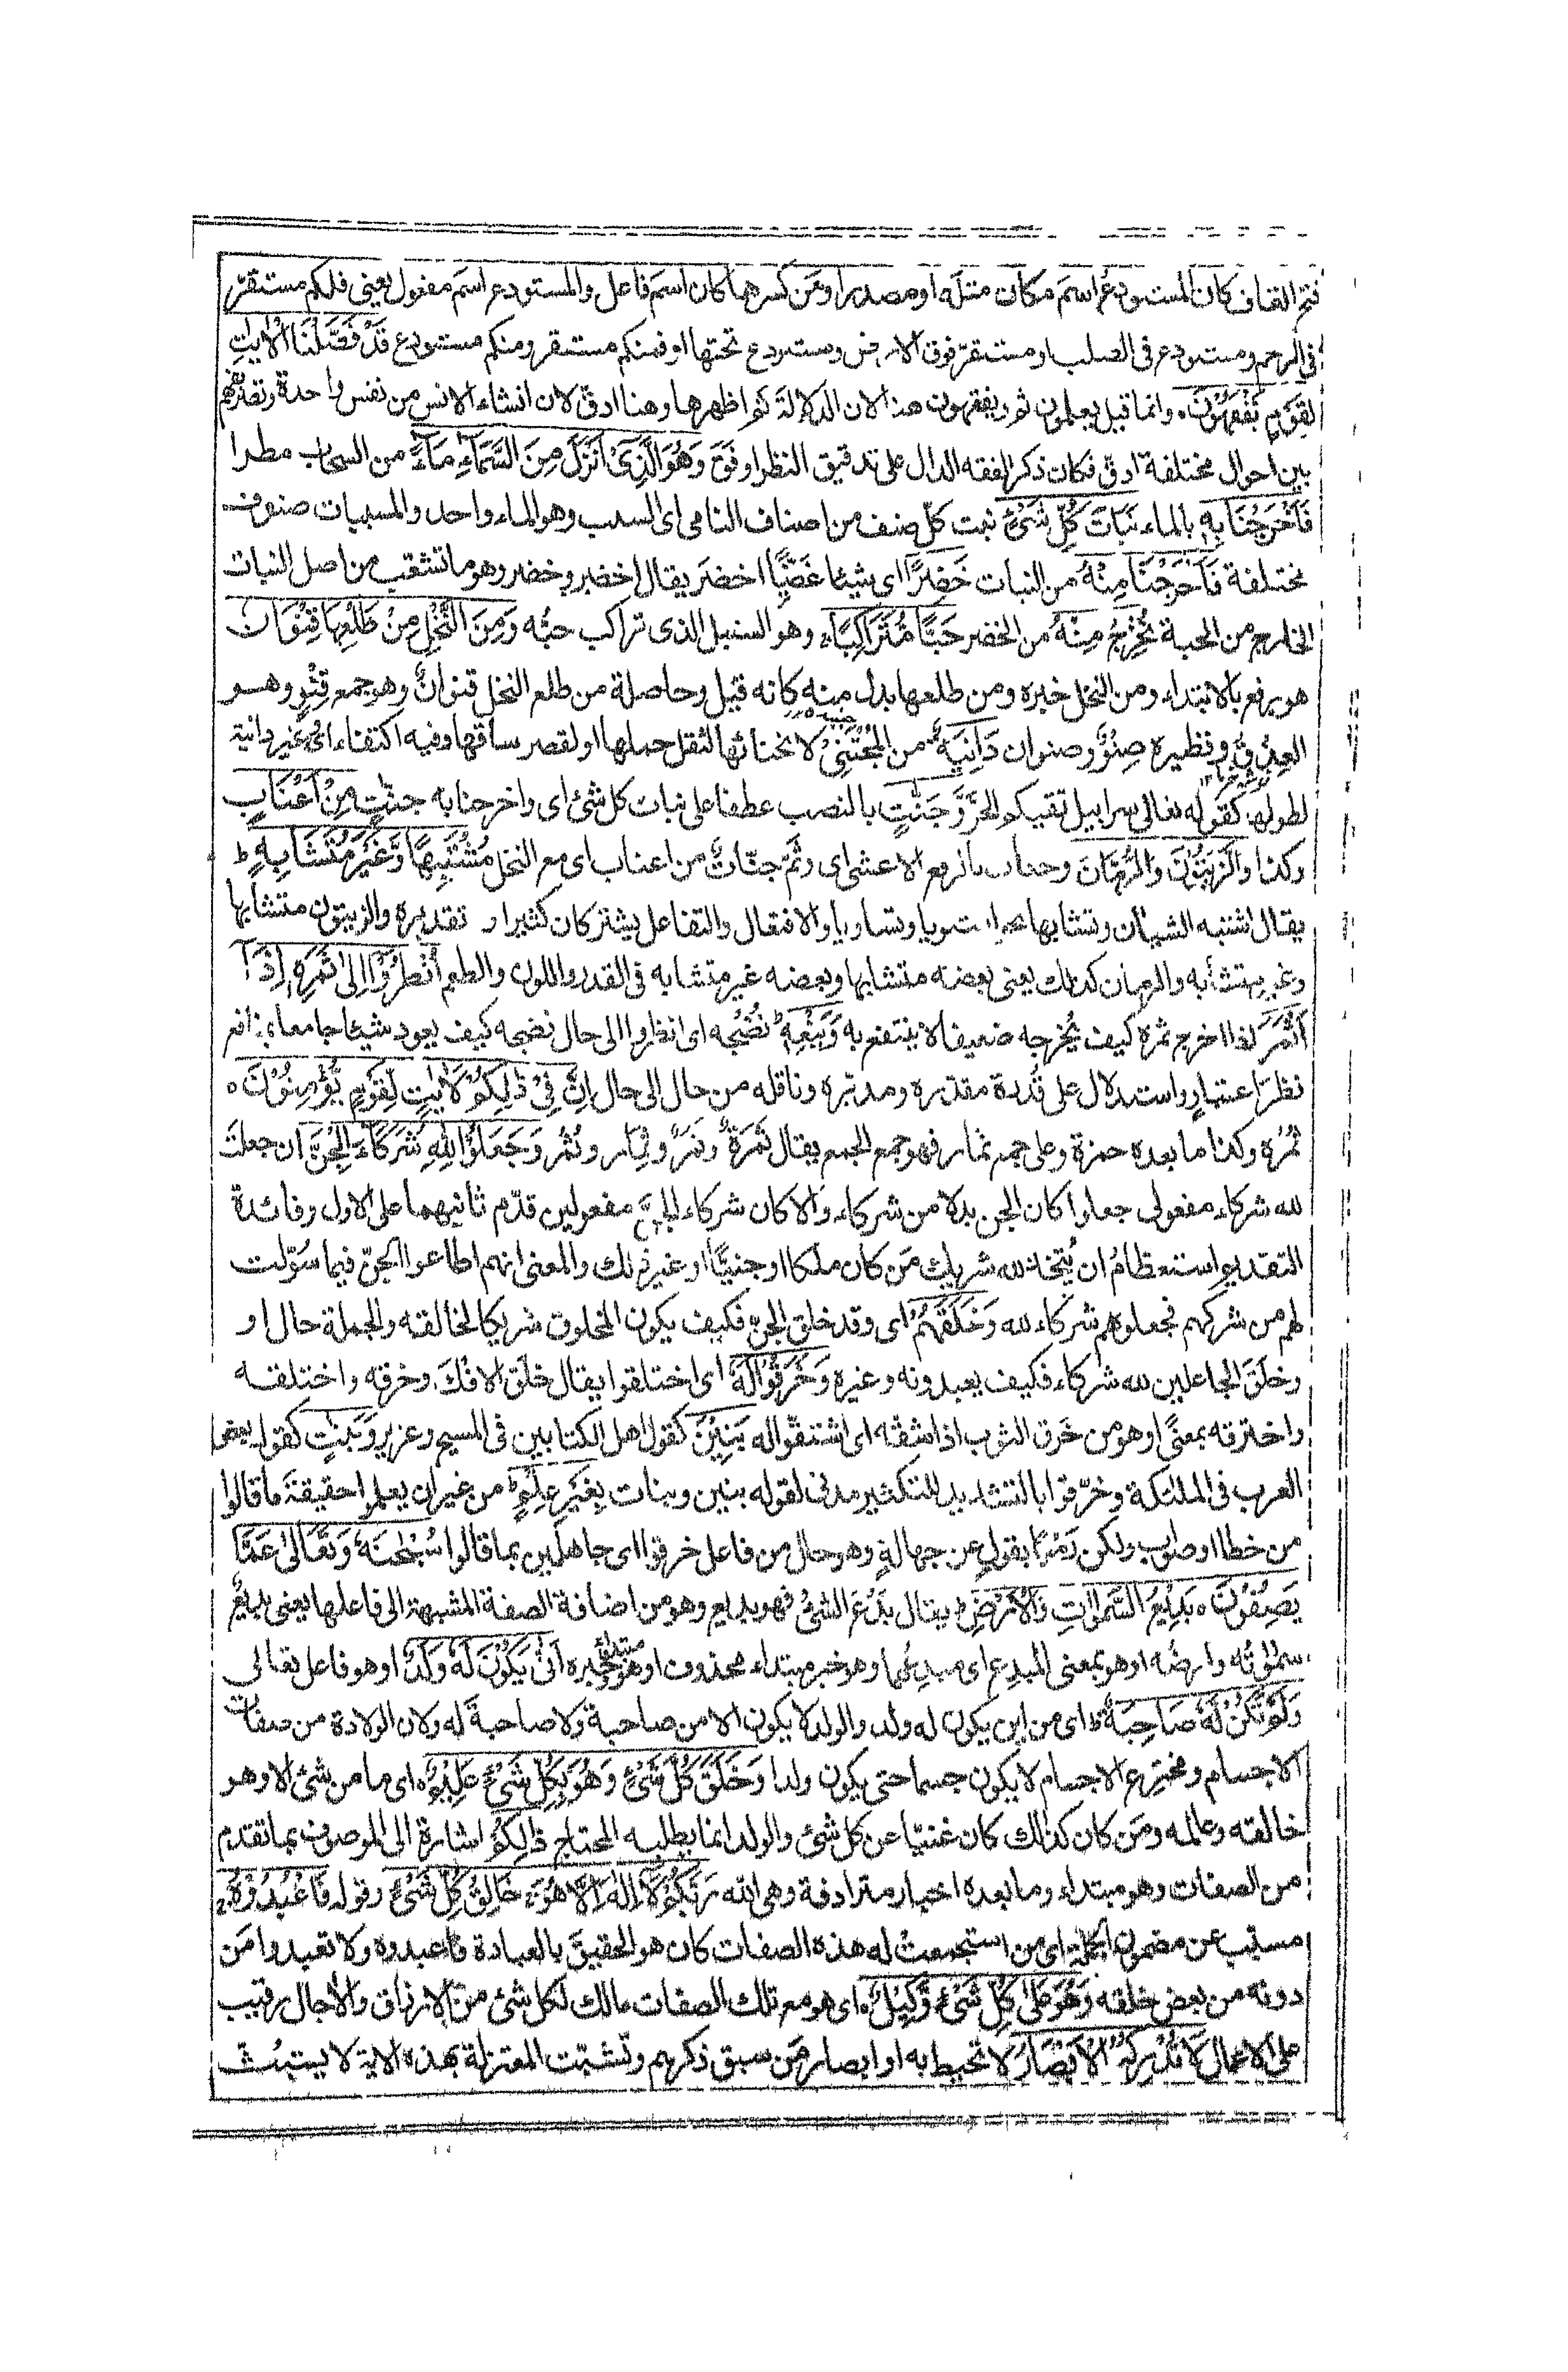 فتح القاف كان المستودع اسم مكان مثله او مصدرا ومن كسرها كان اسم فاعل والمستودع اسم مفعول يعنى فلكم مستقر
فى الرحم ومستودع فى الصلب او مستقر فوق الارض ومستودع تحتها او فمنكم مستقر ومنكم مستودع قَدْ فَصَّلْنَا الْاٰيٰتِ
لِقَوْمٍ يَّفْقَهُوْنَ ه وانما قيل يعلمون ثم ويفقهون هنا لان الدلالة ثم اظهر وهنا ادق لان انشاء الانس من نفس واحدة وتصريفهم
بين احوال مختلفة ادق فكان ذكر الفقه الدال على تدقيق النظر اوفق وَهُوَ الَّذِىْٓ اَنْزَلَ مِنَ السَّمَآءِ مَآءً من السحاب مطرا
فَاَخْرَجْنَا بِهٖ بالماء نَبَاتَ كُلِّ شَىْءٍ نبت كل صنف من اصناف النامى اى السبب وهو الماء واحد والمسببات صنوف
مختلفة فَاَخْرَجْنَا مِنْهُ من النبات خَضِرًا اى شيئا غضًّا اخضر يقال اخضر وخضر وهو ما تشعب من اصل النبات
الخارج من الحبة نُّخْرِجُ مِنْهُ من الخضر حَبًّا مُّتَرَاكِبًا وهو السنبل الذى تراكب حبُّه وَمِنَ النَّخْلِ مِنْ طَلْعِهَا قِنْوَانٌ
هو رفع بالابتداء ومن النخل خبره ومن طلعها بدل منه كانه قيل وحاصلة من طلع النخل قنوانٌ وهو جمع قِنْوٍ وهو
العِذْق ونظيره صِنْوٌ وصنوان دَانِيَةٌ من المُجْتَنِىْ لانحنائها لثقل حملها او لقصر ساقها وفيه اكتفاء اى وغير دانية
لطولها كقوله تعالى سرابيل تقيكم الحرَّ وَّجَنّٰتٍ بالنصب عطفا على نبات كل شئ اى واخرجنا به جنّٰتٍ مِنْ اَعْنَابٍ
وكذا وَّالزَّيْتُوْنَ وَالرُّمَّانَ وجنات بالرفع الاعشى اى وثَمَّ جنّاتٌ من اعناب اى مع النخل مُشْتَبِهًا وَّغَيْرَ مُتَشَابِهٍ ط
يقال اشتبه الشيئان وتشابها نحو استويا وتساويا والافتعال والتفاعل يشتركان كثيرا و تقديره والزيتون متشابها
وغير متشابه والرمان كذلك يعنى بعضه متشابها وبعضه غير متشابه فى القدر واللون والطعم اُنْظُرُوْٓا اِلٰى ثَمَرِهٖٓ اِذَآ
اَثْمَرَ اذا اخرج ثمره كيف يُخرجه ضعيفا لا ينتفع به وَيَنْعِهٖ ط نُضْجه اى انظروا الى حال نضجه كيف يعود شيئا جامعا لمنافع
نظرَ اعتبارٍ واستدلال على قدرة مقدّره ومدبّره وناقله من حال الى حال اِنَّ فِىْ ذٰلِكُمْ لَاٰيٰتٍ لِّقَوْمٍ يُّؤْمِنُوْنَ ه
ثُمُره وكذا ما بعده حمزة وعلى جمع ثمار فهو جمع الجمع يقال ثَمَرَةٌ وثَمَرٌ وثِمار وثُمُر وَجَعَلُوْا لِلّٰهِ شُرَكَآءَ الْجِنَّ ان جعلتَ
لله شركاء مفعولى جعلوا كان الجن بدلا من شركاء والا كان شركاء الجنّ مفعولين قدّم ثانيهما على الاول وفائدة
التقديم استعظامُ ان يُّتخذ لله شريك مَن كان ملكا او جنيًّا او غير ذلك والمعنى انهم اطاعوا الجنّ فيما سَوّلت
لهم من شركهم فجعلوهم شركاء لله وَخَلَقَهُمْ اى وقد خلق الجن فكيف يكون المخلوق شريكا لخالقه والجملة حال او
وخلَقَ الجاعلين لله شركاء فكيف يعبدونه وغيره وَخَرَقُوْا لَهٗ اى اختلقوا يقال خلَق الافكَ وخرقه واختلقه
واخترقه بمعنًى او هو من خَرَق الثوب اذا شقّه اى اشتقّوا له بَنِيْنَ كقول اهل الكتابين فى المسيح وعزير وَبَنٰتٍ كقول بعض
العرب فى الملٰئكة وخرّقوا بالتشديد للتكثير مدنى لقوله بنين وبنات بِغَيْرِ عِلْمٍ ط من غير ان يعلموا حقيقةَ ما قالوا
من خطا او صواب ولكن رَمْيًا بقول عن جهالةٍ وهو حال من فاعل خرقوا اى جاهلين بما قالوا سُبْحٰنَهٗ وَتَعَالٰى عَمَّا
يَصِفُوْنَ ه بَدِيْعُ السَّمٰوٰتِ وَالْاَرْضِ ط يقال بَدُعَ الشئُ فهو بديع وهو من اضافة الصفة المشبهة الى فاعلها يعنى بديعٌ
سمٰوٰتُه وارضُه او هو بمعنى المُبدِع اى مبدِعُها وهو خبر مبتداء محذوف او هو مبتدأ وخبره اَنّٰى يَكُوْنُ لَهٗ وَلَدٌ او هو فاعل تعالى
وَلَمْ تَكُنْ لَّهٗ صَاحِبَةٌ ط اى من اين يكون له ولد والولد لا يكون الا من صاحبة ولا صاحبةَ له ولان الولادة من صفات
الاجسام ومخترع الاجسام لا يكون جسما حتى يكون ولدا وَخَلَقَ كُلَّ شَىْءٍ وَهُوَ بِكُلِّ شَىْءٍ عَلِيْمٌ ه اى ما من شئ الا وهو
خالقه وعالمه ومَن كان كذٰلك كان غنيّا عن كل شئ والولد انما يطلبه المحتاج ذٰلِكُمُ اشارة الى الموصوف بما تقدم
من الصفات وهو مبتداء وما بعده اخبار مترادفة وهى الله رَبُّكُمْ لَآ اِلٰهَ اِلَّا هُوَ خَالِقُ كُلِّ شَىْءٍ وقوله فَاعْبُدُوْهُ
مسبّب عن مضمون الجملة اى من استجمعتْ له هذه الصفات كان هو الحقيقَ بالعبادة فاعبدوه ولا تعبدوا مَن
دونه من بعض خلقه وَهُوَ عَلٰى كُلِّ شَىْءٍ وَّكِيْلٌ ه اى هو مع تلك الصفات مالك لكل شئ من الارزاق والاٰجال رقيب
على الاعمال لَا تُدْرِكُهُ الْاَبْصَارُ لا تحيط به او ابصار مَن سبق ذكرهم وتشبّث المعتزلة بهذه الاية لا يستبث